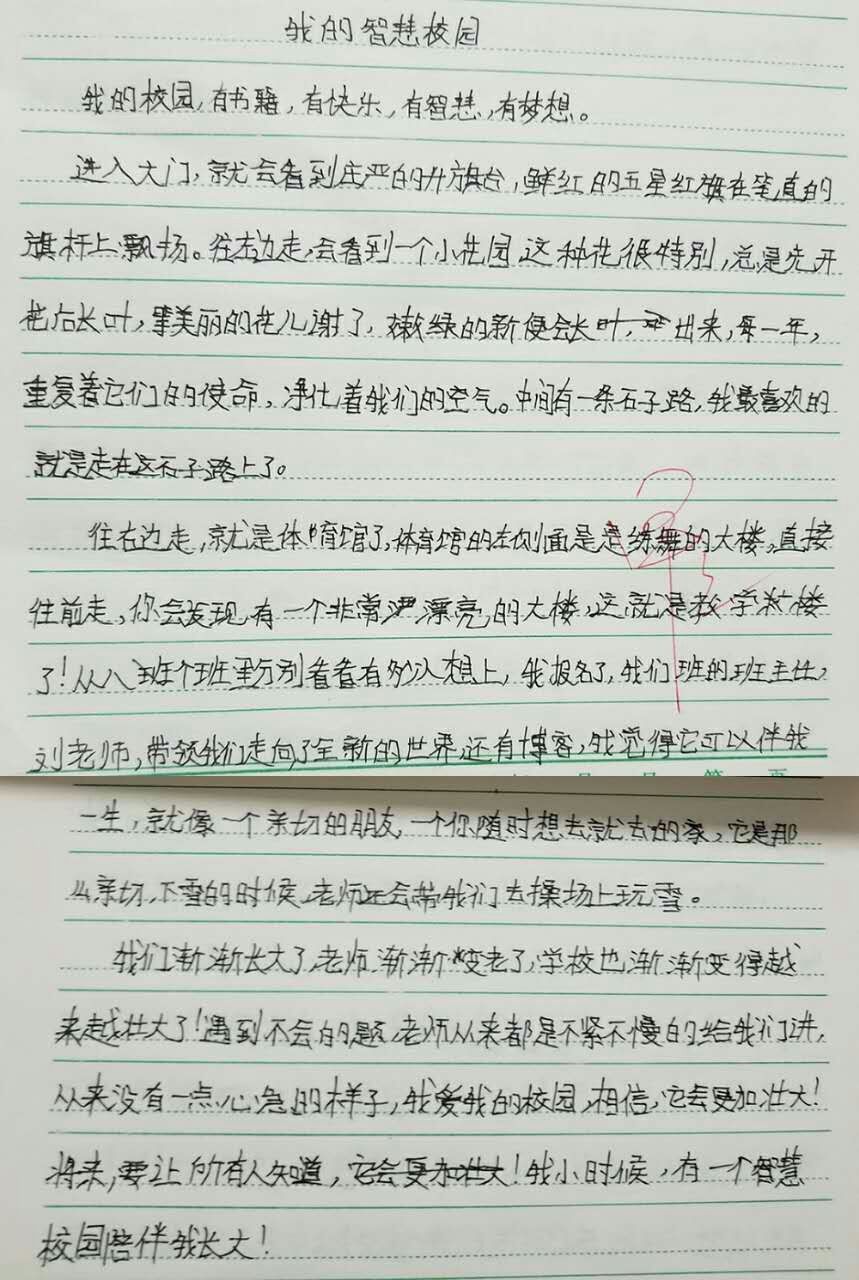 我的智慧校园
我的校园,有书籍,有快乐,有智慧,有梦想。
进入大门,就会看到庄严的升旗台,鲜红的五星红旗在笔直的
旗杆上飘扬。往左边走,会看到一个小花园,这种花很特别,总是先开
花后长叶,等美丽的花儿谢了,嫩绿的新便会长叶,出来,每一年,
重复着它们的使命,净化着我们的空气。中间有一条石子路,我最喜欢的
就是走在这石子路上了。
往右边走,就是体育馆了,体育馆的左侧面是是练舞的大楼,直接
往前走,你会发现有一个非常漂亮的大楼,这就是教学楼
了!从八班个班里分别看看有多少人想上,我报名了,我们班的班主任,
刘老师,带领我们走向了全新的世界,还有博客,我觉得它可以伴我
一生,就像一个亲切的朋友,一个你随时想去就去的家,它是那
么亲切,下雪的时候,老师还会带我们去操场上玩雪。
我们渐渐长大了,老师渐渐变老了,学校也渐渐变得越
来越壮大了!遇到不会的题,老师从来都是不紧不慢的给我们讲,
从来没有一点心急的样子,我爱我的校园,相信,它会更加壮大!
将来,要让所有人知道,它会更加壮大!我小时候,有一个智慧
校园陪伴我长大!